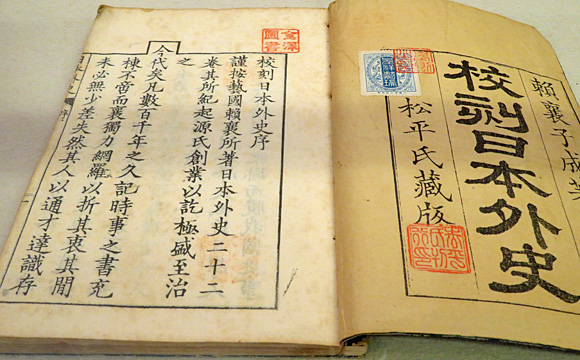 賴襄子成
校刻日本外史
松平氏藏版
校刻日本外史序
謹按藝國賴襄所著日本外史二十二
卷其所紀起源氏創業以訖極盛至治
之
今代矣凡數百千年之久記時事之書充
棟不啻而襄獨力網羅以折其衷其閒
未必無少差失然其人以通才達識存